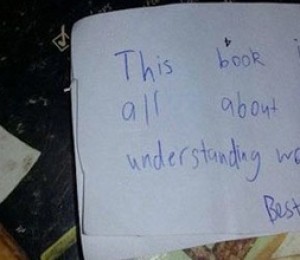 This book
all about
understanding
Best